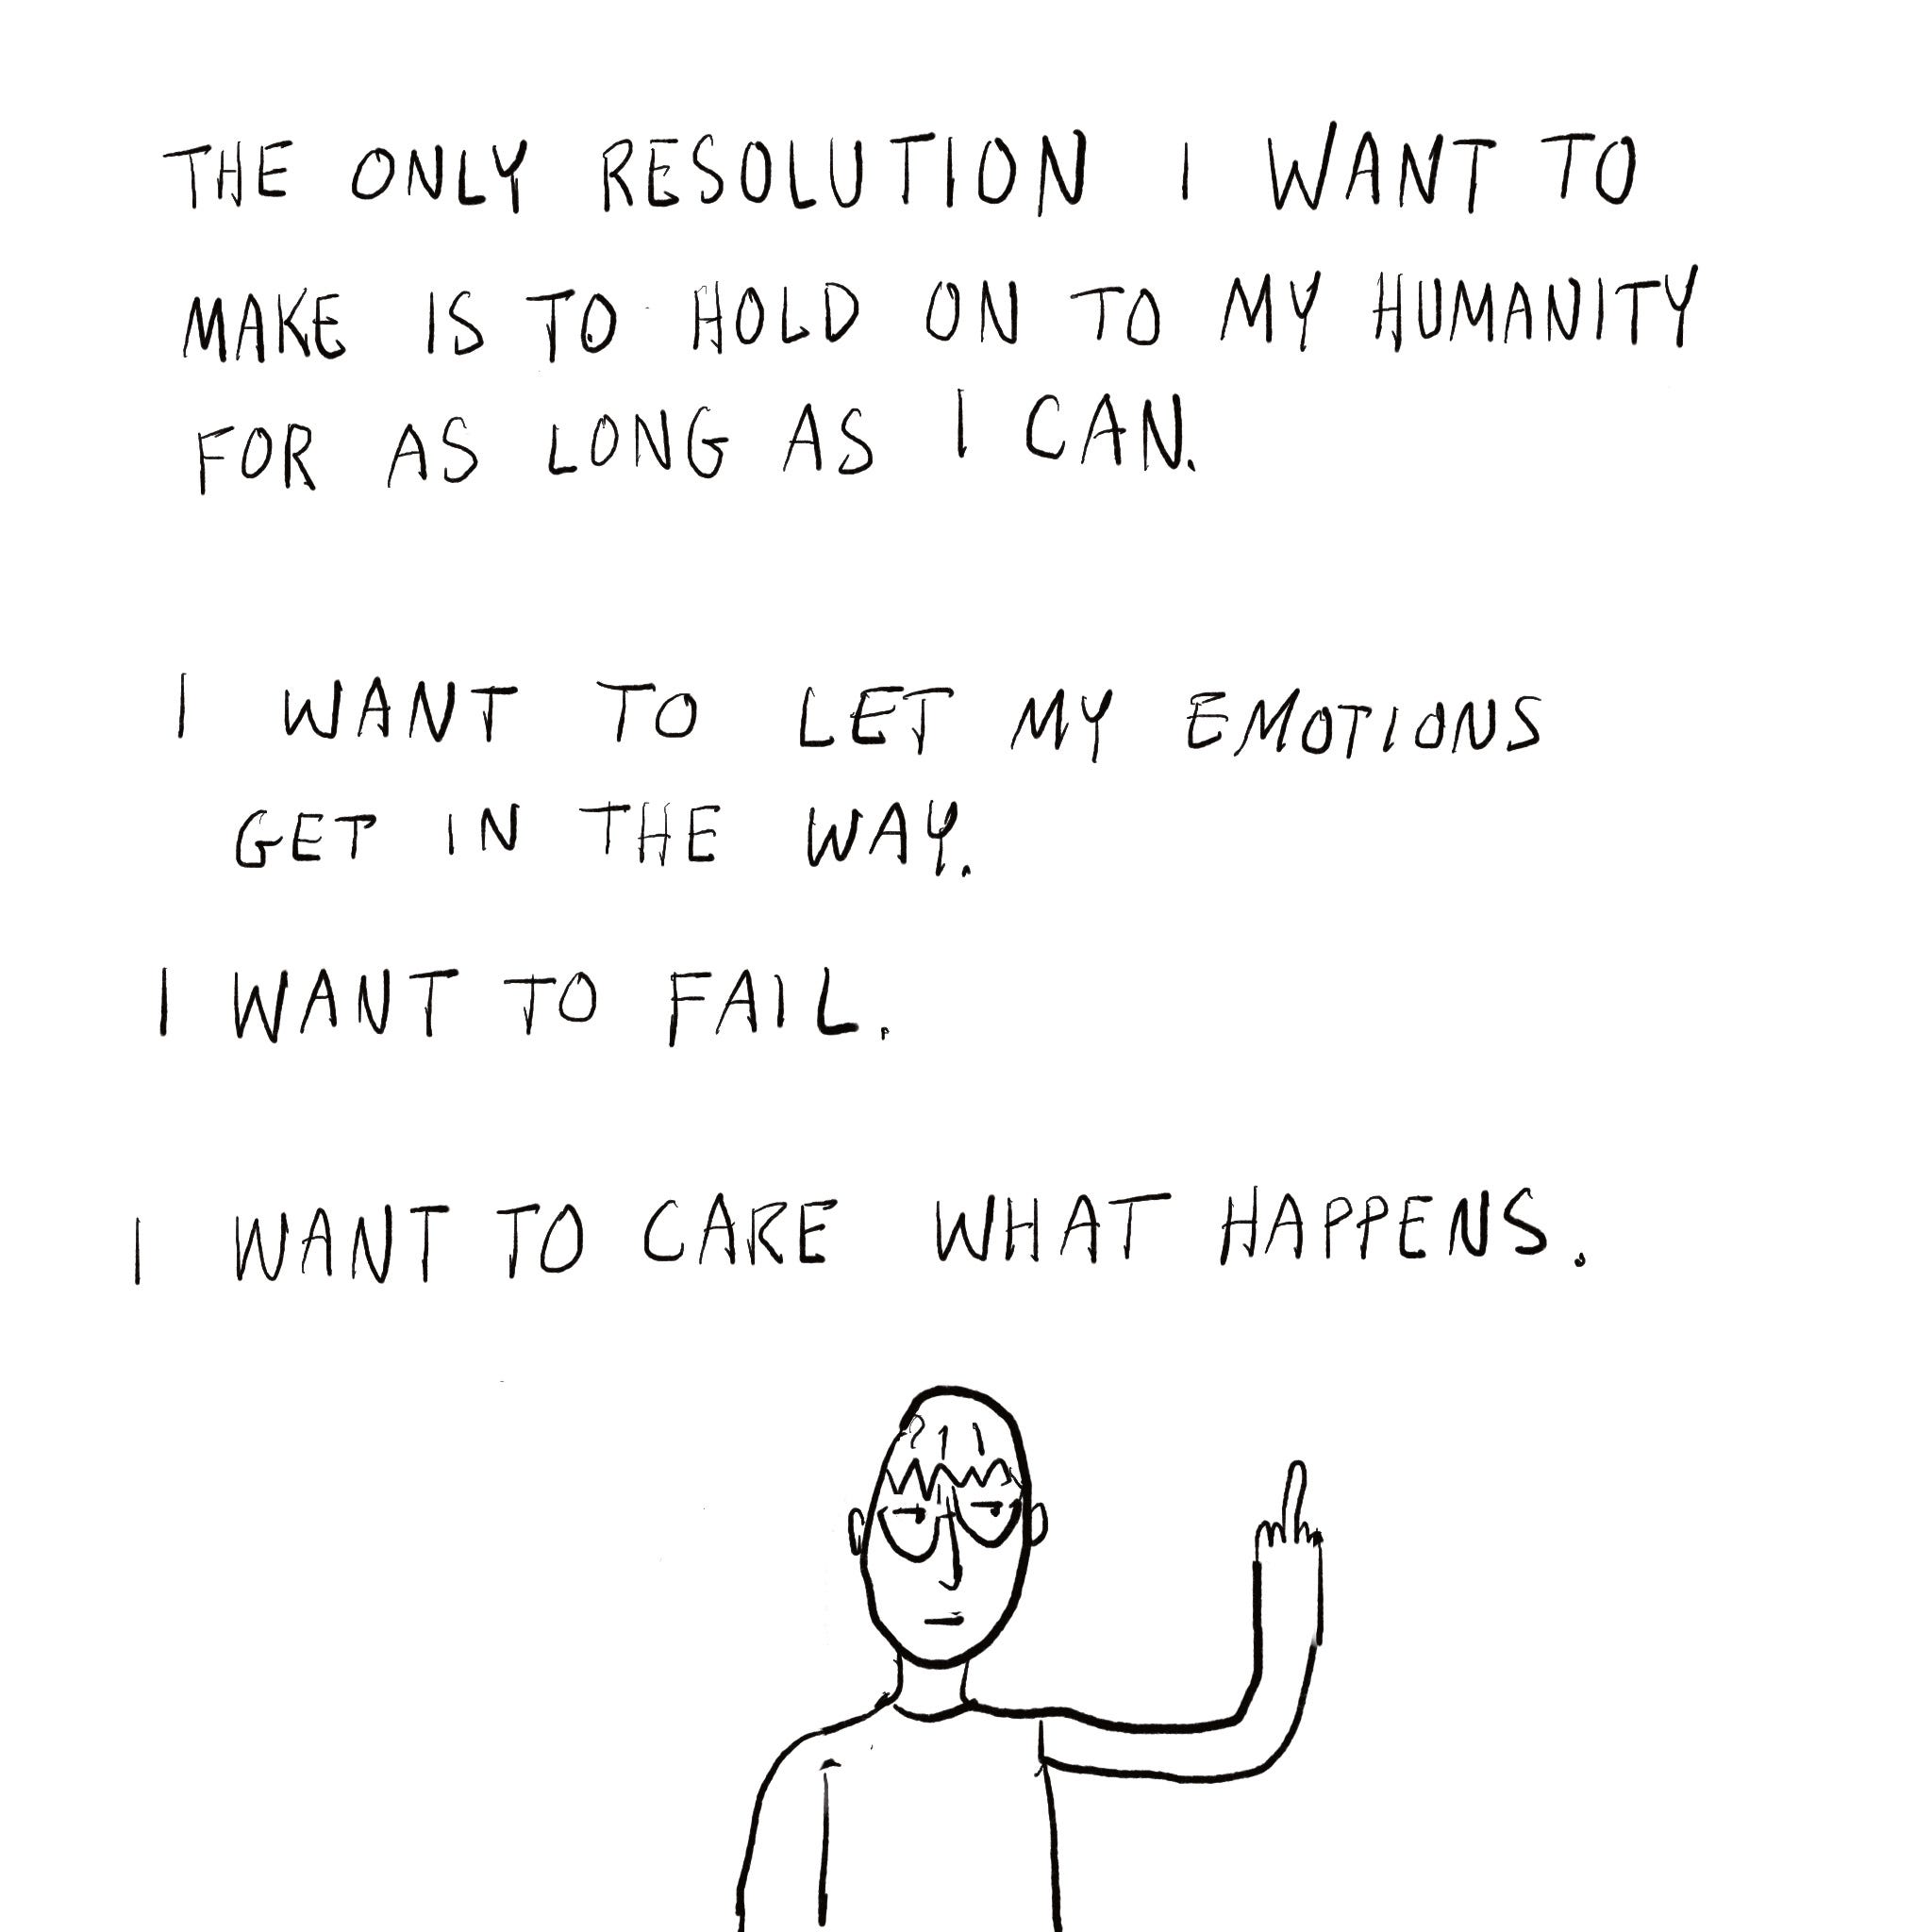 THE ONLY RESOLUTION I WANT TO
MAKE IS TO HOLD ON TO MY HUMANITY
FOR AS LONG AS I CAN.
I WANT TO LET MY EMOTIONS
GET IN THE WAY.
I WANT TO FAIL.
I WANT TO CARE WHAT HAPPENS.